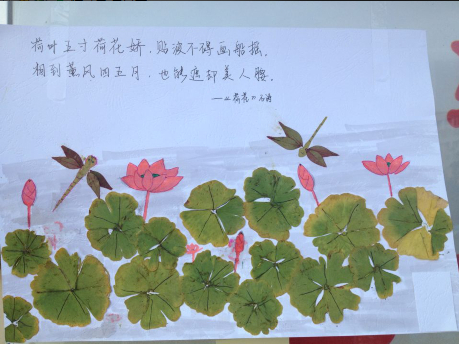 荷叶五寸荷花娇，贴波不碍画船摇。
相到薰风四五月，也能遮却美人腰。
——《荷花》石涛